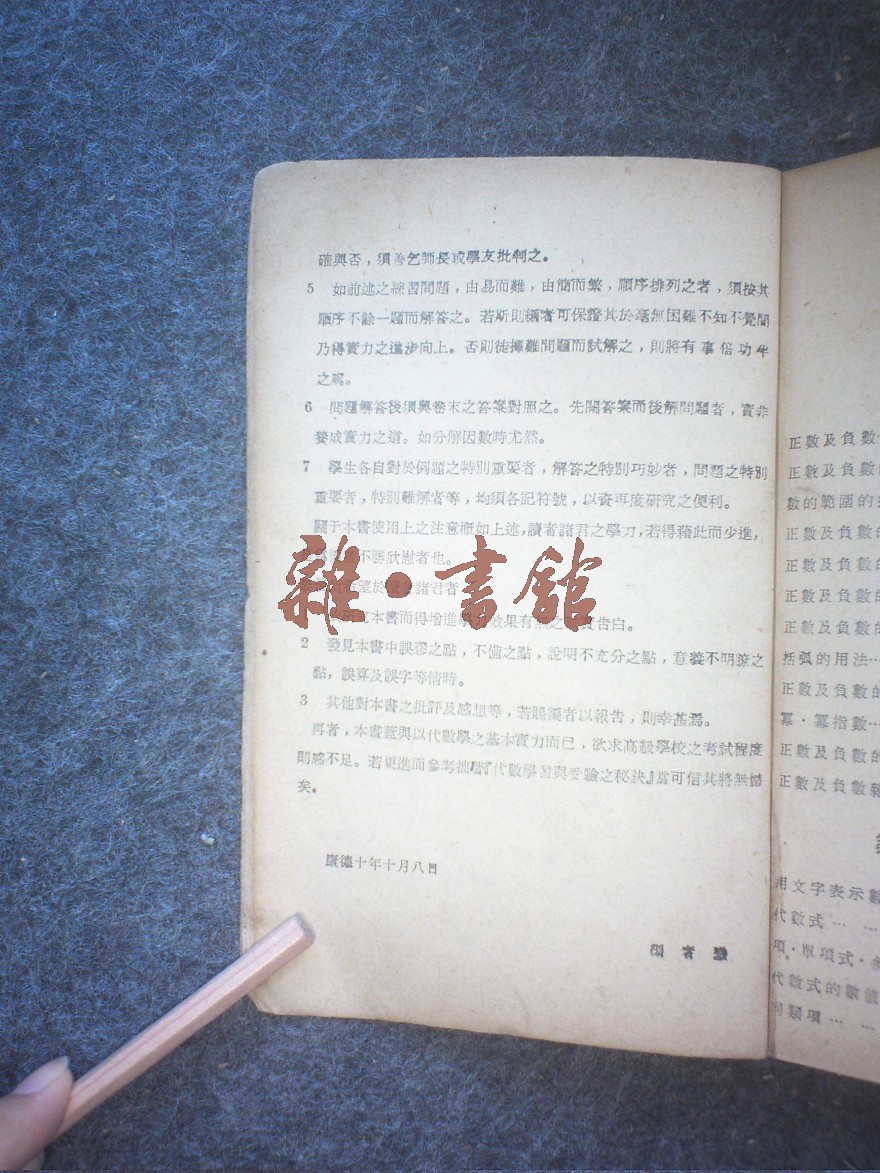 確與否，須善乞師長或學友批判之。
5 如前述之練習問題，由易而難，由簡而繁，順序排列之者，須按其
順序不餘一題而解答之。若斯則讀者可保證其於毫無困難不知不覺間
乃得實力之進步向上。否則徒擇難問題而試解之，則將有事倍功半
之處。
6 問題解答後須與卷末之答案對照之。先閱答案而後解問題者，實非
養成實力之道。如分解因數時尤然。
7 學生各自對於例題之特別重要者，解答之特別巧妙者，問題之特別
重要者，特別難解者等，均須各記符號，以資再度研究之便利。
關于本書使用上之注意概如上述，讀者諸君之學力，若得藉此而少進，
不勝欣慰者也。
望於 諸君者
本書而得增進學力效果有無之 實告白。
2 發見本書中誤謬之點，不備之點，說明不充分之點，意義不明瞭之
點，誤算及誤字等情時。
3 其他對本書之批評及感想等，若賜 者以報告，則幸甚焉。
再者，本書蓋與以代數學之基本實力而已，欲求高級學校之考試程度
則感不足。若更進而參考拙著『代數學習與受驗之秘訣』當可信其將無憾
矣。
康德十年十月八日
者
雜·書館
正數及負數
正數及負數
數的範圍的
正數及負數的
正數及負數的
正數及負數的
正數及負數的
括弧的用法…
正數及負數的
冪·冪指數…
正數及負數的
正數及負數雜
用文字表示數
代數式 … …
項·單項式·多
代數式的數值
同類項 … …